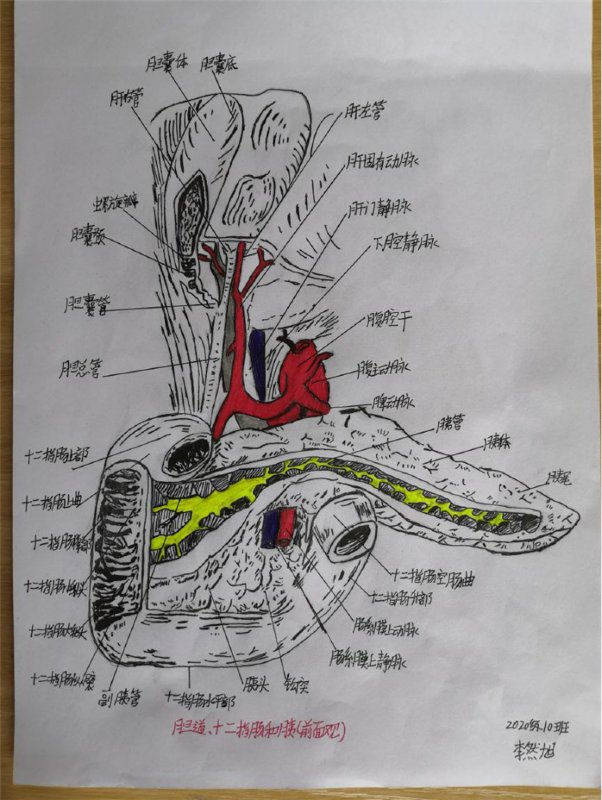 胆囊体
胆囊底
肝右管
肝左管
肝固有动脉
螺旋瓣
肝门静脉
胆囊颈
下腔静脉
胆囊管
腹腔干
胆总管
腹主动脉
脾动脉
胰管
胰体
胰尾
十二指肠上部
十二指肠上曲
十二指肠降部
十二指肠小乳头
十二指肠大乳头
十二指肠纵襞
副胰管
十二指肠水平部
胰头
钩突
肠系膜上静脉
肠系膜上动脉
十二指肠升部
十二指肠空肠曲
胆道、十二指肠和胰(前面观)
2020级.10班
李然旭